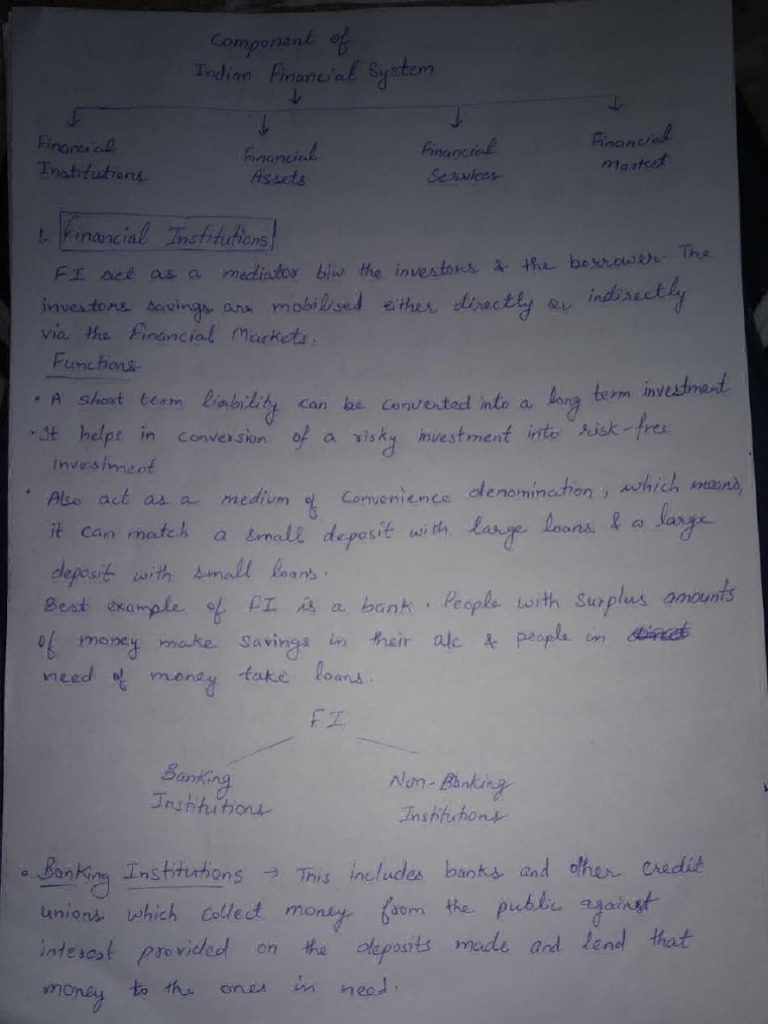 Component of
Indian Financial System
Financial Institutions
Financial Assets
Financial Services
Financial Market
1. Financial Institutions
FI act as a mediator b/w the investors & the borrower. The
investors savings are mobilised either directly or indirectly
via the Financial Markets.
Functions
• A short term liability can be converted into a long term investment
• It helps in conversion of a risky investment into risk-free
investment
• Also act as a medium of convenience denomination, which means,
it can match a small deposit with large loans & a large
deposit with small loans.
Best example of FI is a bank. People with surplus amounts
of money make savings in their a/c & people in
need of money take loans.
FI
Banking Institutions
Non-Banking Institutions
Banking Institutions → This includes banks and other credit
unions which collect money from the public against
interest provided on the deposits made and lend that
money to the ones in need.